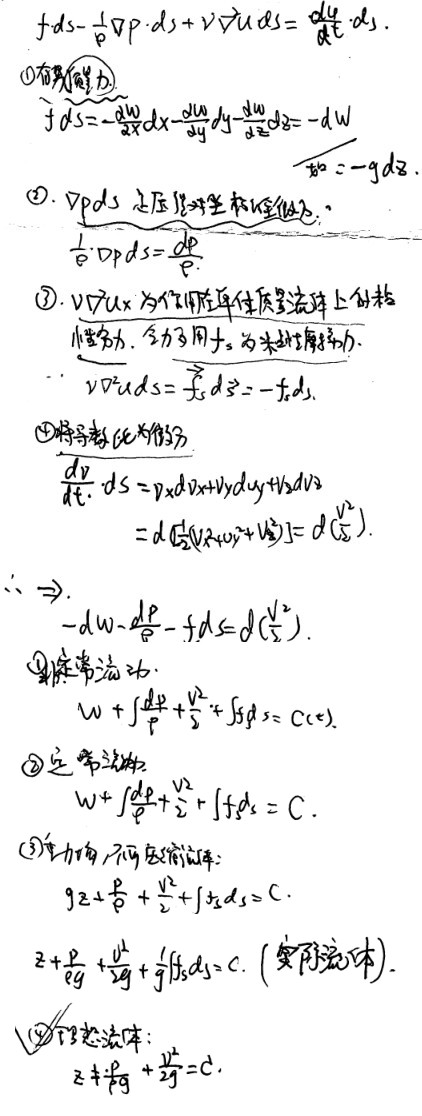 f·ds - 1/ρ ∇p·ds + ν∇²u ds = du/dt·ds.
①有势质量力.
f ds = -∂W/∂x dx - ∂W/∂y dy - ∂W/∂z dz = -dW
如 = -gdz.
②. ∇p ds 是压强对坐标
1/ρ·∇p ds = dp/ρ.
③. ν∇²ux 为作用在单位质量流体上的粘
性力. 用 fs 为粘性摩擦力.
∴ ν∇²u ds = fs ds = -fs ds.
④将导数化为微分
dv/dt · ds = vxdvx + vydvy + vzdvz
= d[1/2(vx²+vy²+vz²)] = d(v²/2).
∴ ⇒.
-dW - dp/ρ - fds = d(v²/2).
①非定常流动.
W + ∫dp/ρ + v²/2 + ∫fs ds = C(t).
②定常流动.
W + ∫dp/ρ + v²/2 + ∫fs ds = C.
(3)重力场,不可压缩流体:
gz + p/ρ + v²/2 + ∫fs ds = C.
z + p/ρg + v²/2g + 1/g∫fs ds = C. (实际流体).
(4)理想流体:
z + p/ρg + v²/2g = C.